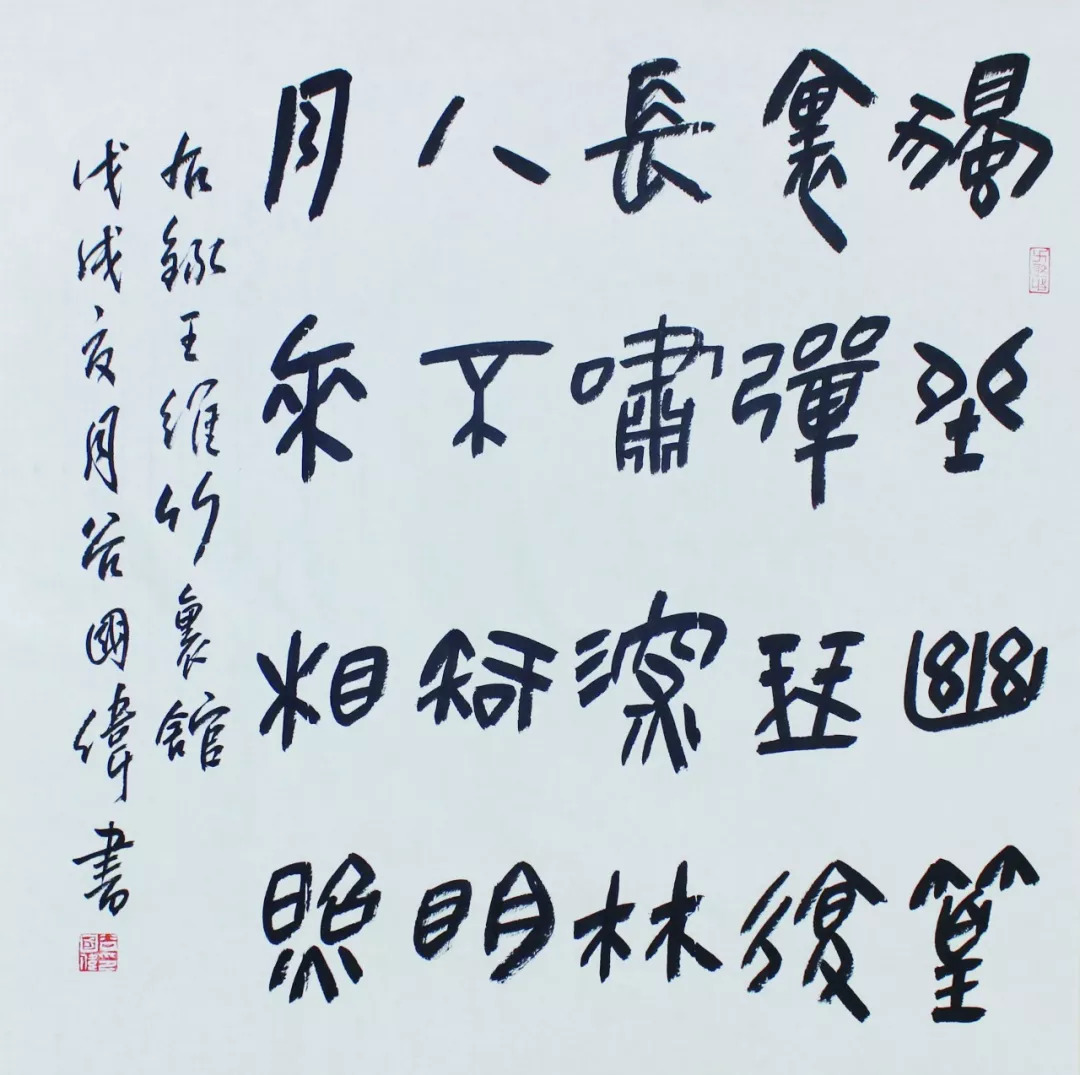 獨坐幽篁
裏彈琴復
長嘯深林
人不知明
月來相照
右錄王維竹裏館
戊戌夏月谷國偉書